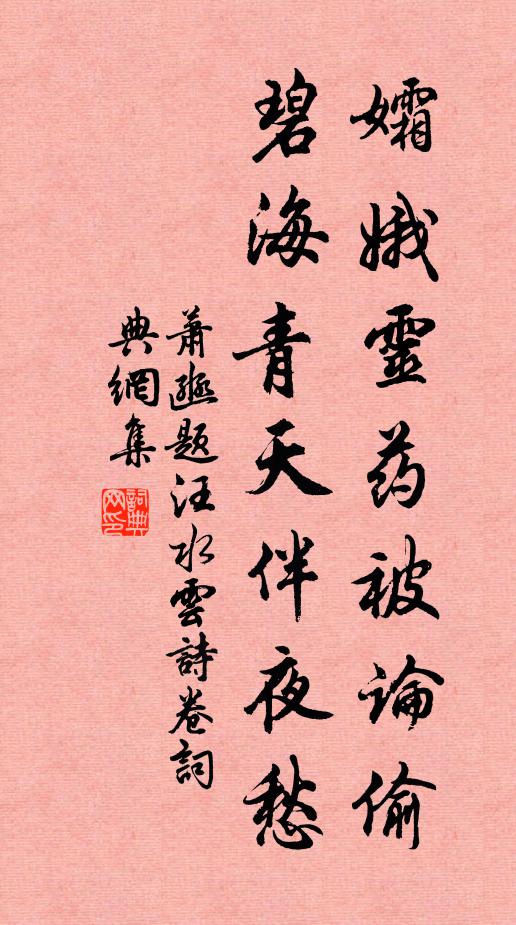 孀娥靈药被論偷
碧海青天伴夜愁
蕭题汪水雲詩卷詞
典網集
詞典
网印